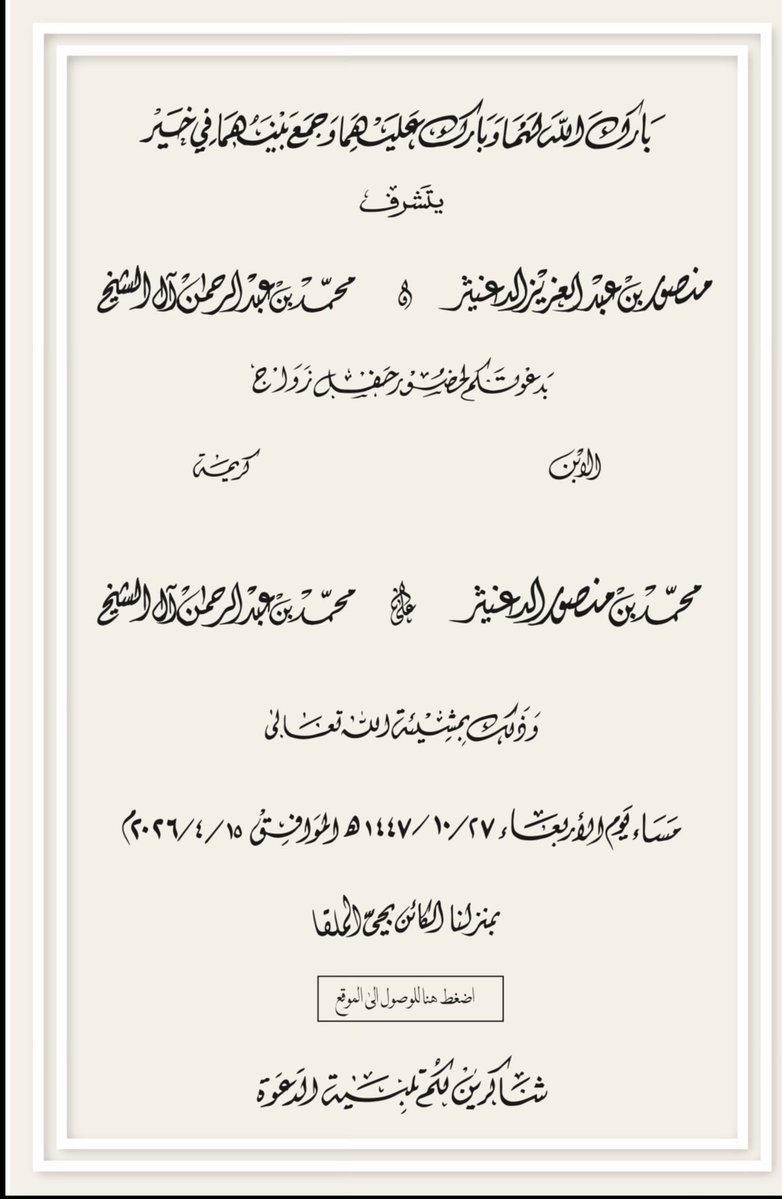 بَارَكَ اللّٰهُ لَهُمَا وَبَارَكَ عَلَيْهِمَا وَجَمَعَ بَيْنَهُمَا فِي خَيْر
يتشرف
منصور بن عبد العزيز الدغيثر و محمّد بن عبد الرحمن آل الشيخ
بدعوتكم لحضور حفل زواج
الابن كريمة
محمّد بن منصور الدغيثر على محمّد بن عبد الرحمن آل الشيخ
وذلك بمشيئة الله تعالى
مساء يوم الأربعاء ١٤٤٧/١٠/٢٧هـ الموافق ٢٠٢٦/٤/١٥م
بمنزلنا الكائن بحيّ الملقا
اضغط هنا للوصول الى الموقع
شاكرين لكم تلبية الدعوة